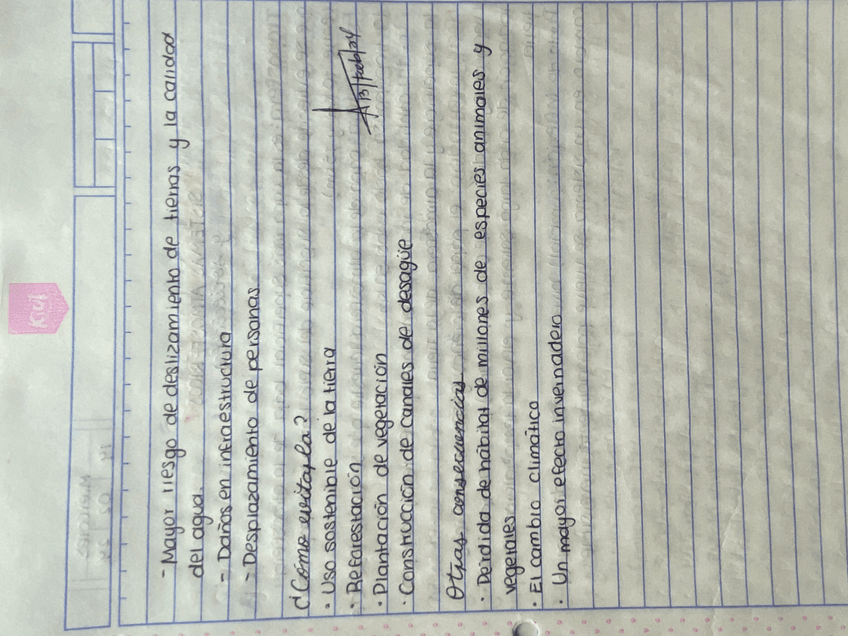 Kiut
- Mayor riesgo de deslizamiento de tierras y la calidad
del agua.
- Daños en infraestructura
- Desplazamiento de personas.
¿Cómo evitarla?
· Uso sostenible de la tierra
· Reforestación
· Plantación de vegetación
· Construcción de canales de desagüe
Otras consecuencias
· Pérdida de hábitat de millones de especies animales y
vegetales
· El cambio climático
· Un mayor efecto invernadero.